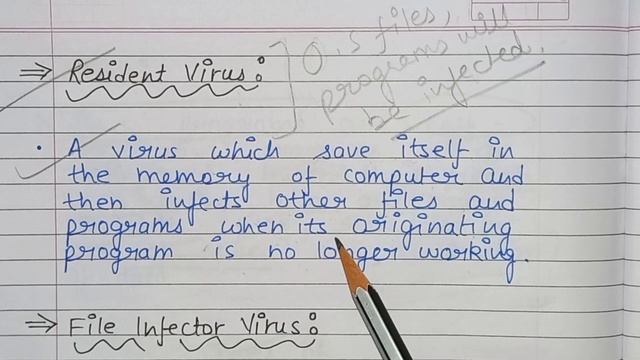 ⇒ Resident Virus:
O.S files,
programs will
be infected.
• A virus which save itself in
the memory of computer and
then infects other files and
programs when its originating
program is no longer working.
⇒ File Infector Virus: